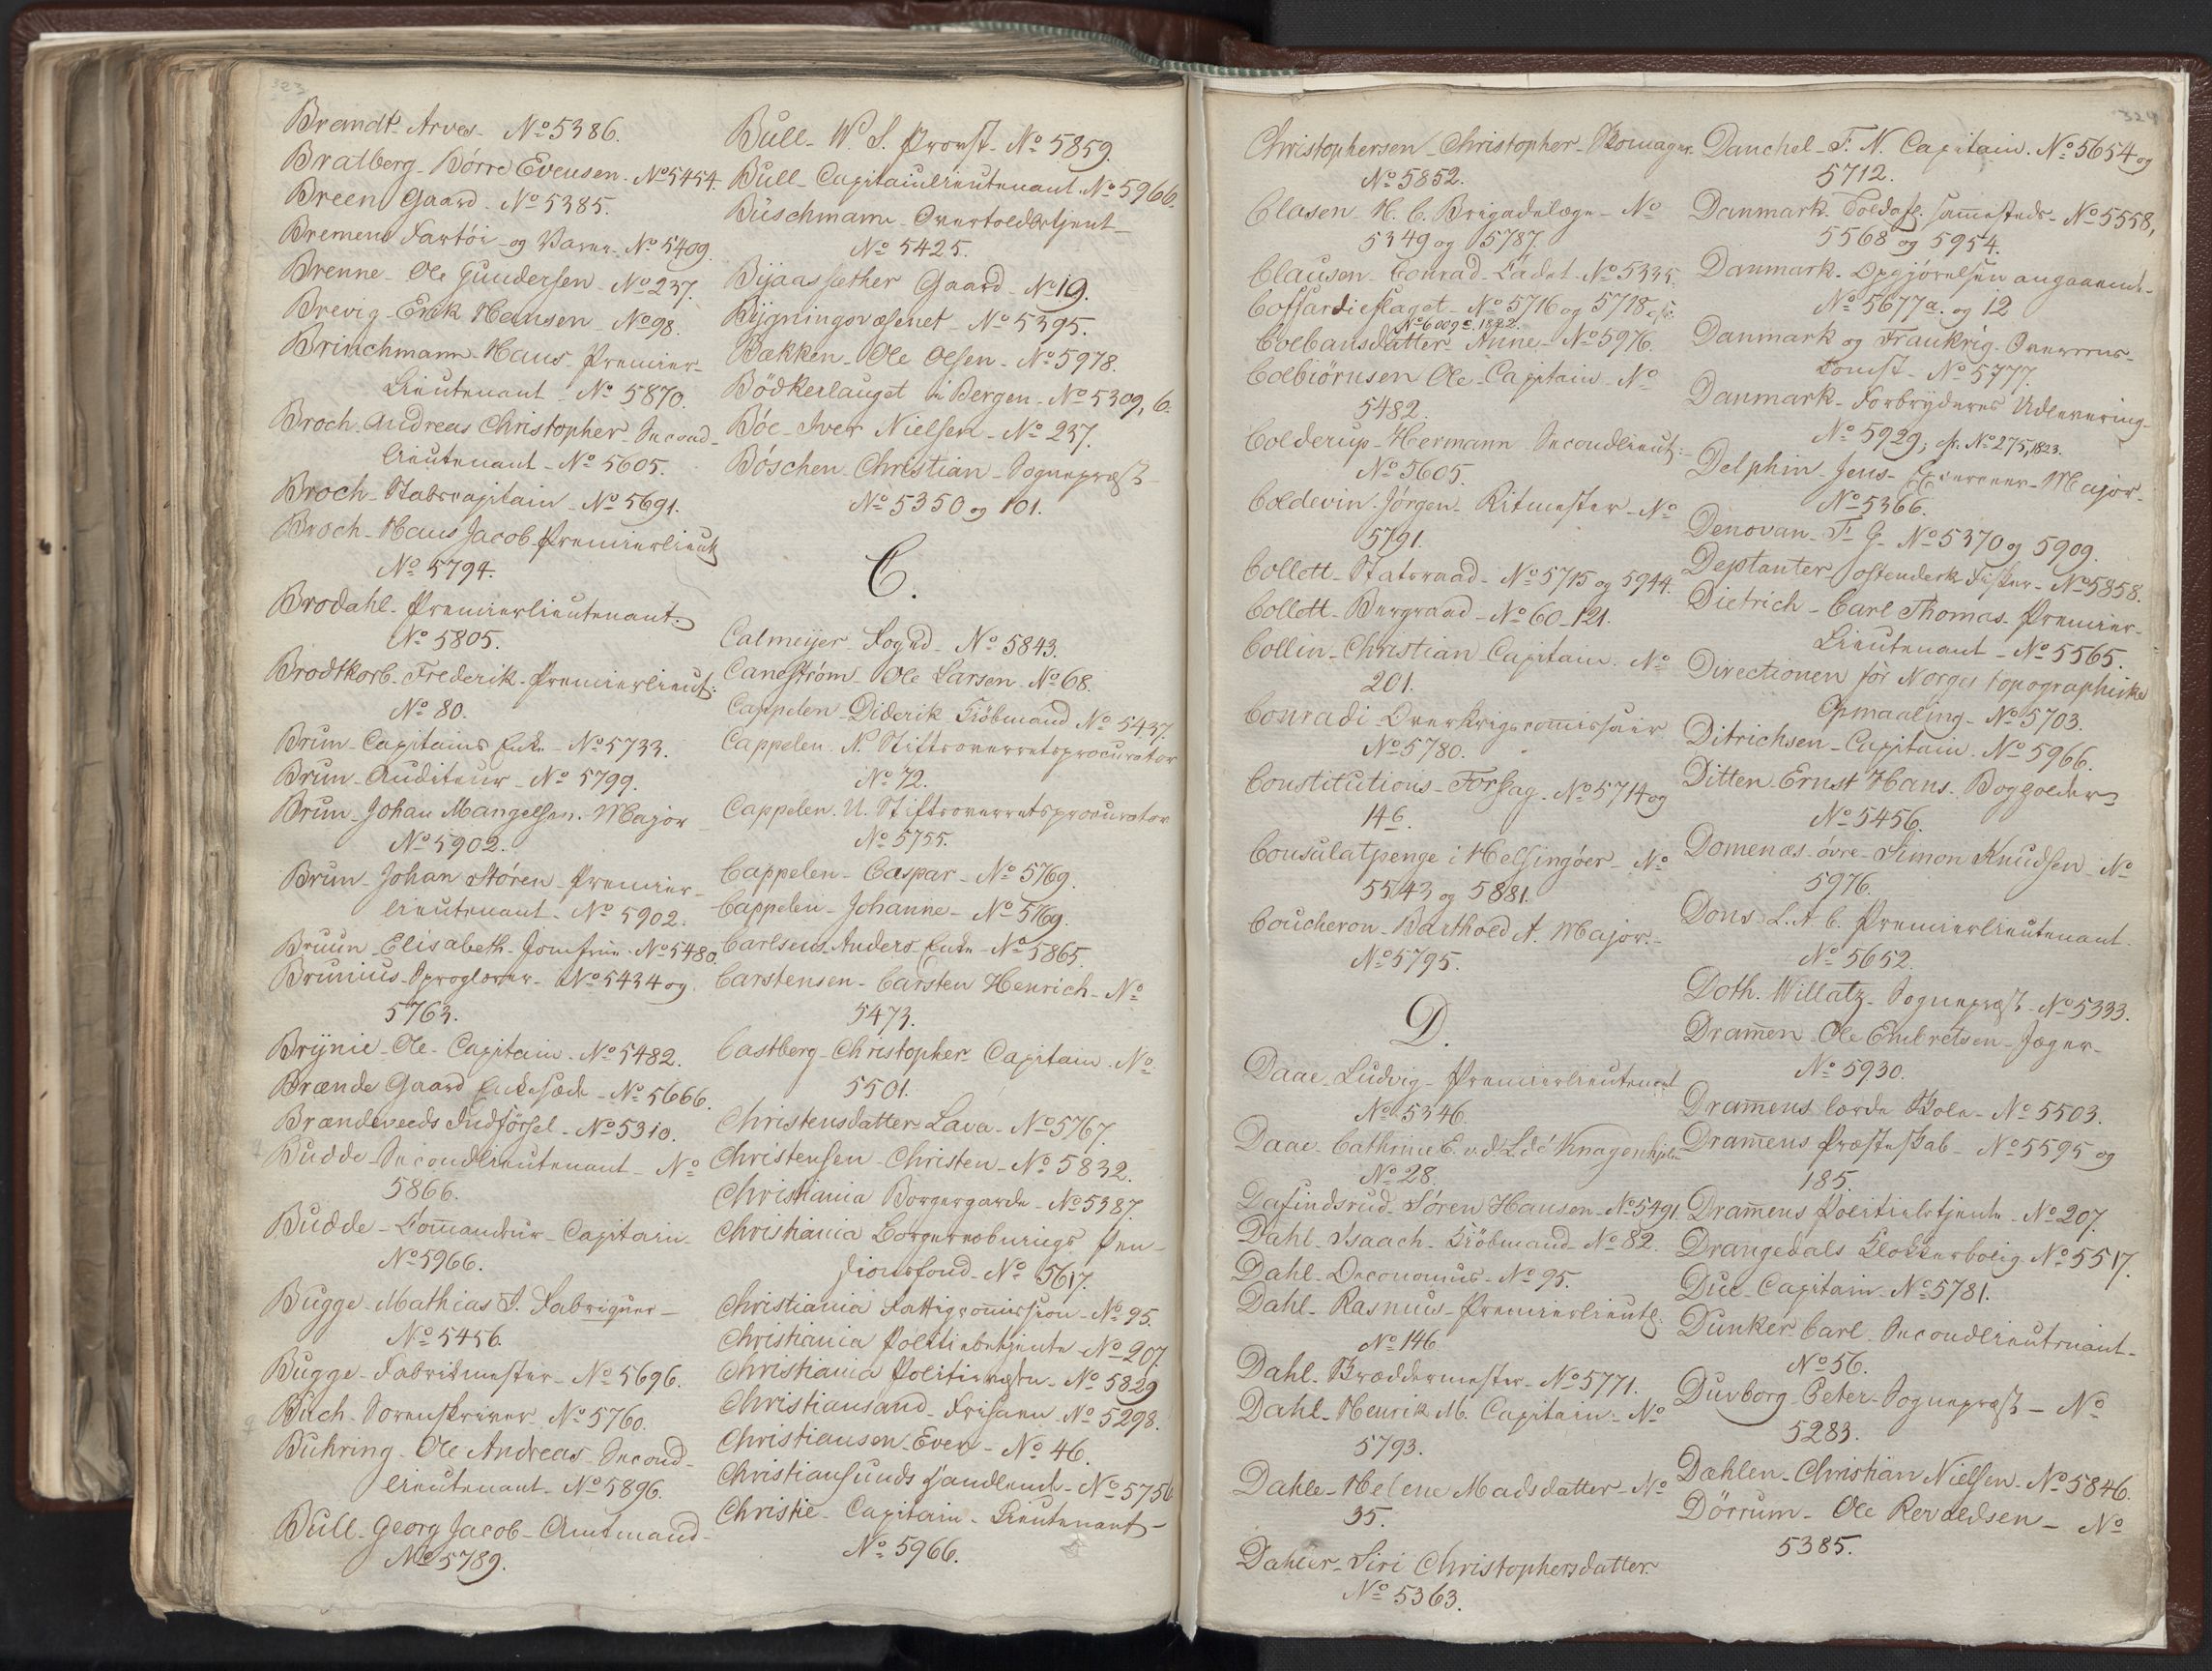 323
Brandt Arves No 5386.
Bratberg Börre Evensen No 5454.
Breen Gaard No 5385.
Bremens Fartöi og Varer No 5409.
Brenne Ole Gundersen No 237.
Brevig Erik Hansen No 98.
Brinchmann Hans Premier-
Lieutenant No 5870.
Broch Andreas Christopher Second-
lieutenant No 5605.
Broch Stabscapitain No 5691.
Broch Hans Jacob Premierlieut.
No 5794.
Brodahl Premierlieutenant
No 5805.
Brodtkorb Frederik Premierlieut:
No 80.
Brun Capitains Enke No 5733.
Brun Auditeur No 5799.
Brun Johan Mangelsen Major
No 5902.
Brun Johan Stören Premier-
lieutenant No 5902.
Bruun Elisabeth Jomfrue No 5480.
Brunius Sproglærer No 5434 og
5763.
Brynie Ole Capitain No 5482.
Brænde Gaard Enkesæde No 5666.
Brændeveeds Indförsel No 5310.
Budde Secondlieutenant No
5866.
Budde Commandeur Capitain
No 5966.
Bugge Mathias S. Fabriquer
No 5456.
Bugge Fabrikmester No 5696.
Buch Sorenskriver No 5760.
Buhring Ole Andreas Second-
lieutenant No 5896.
Bull Georg Jacob Amtmand
No 5789.
Bull W. S. Provst No 5859.
Bull Capitainlieutenant No 5966.
Büschmann Overtoldbetjent
No 5425.
Byaassæther Gaard No 19.
Bygningsvæsenet No 5395.
Bækken Ole Olsen No 5978.
Bödkerlauget i Bergen No 5309, 6.
Böe Iver Nielsen No 237.
Böschen Christian Sognepræst
No 5350 og 101.
C.
Calmeyer Foged No 5843.
Caneström Ole Larsen No 68.
Cappelen Diderik Kiöbmand No 5437.
Cappelen N. Stiftsoverretsprocurator
No 72.
Cappelen U. Stiftsoverretsprocurator
No 5755.
Cappelen Caspar No 5769.
Cappelen Johanne No 5769.
Carlsens Anders Enke No 5865.
Carstensen Carsten Henrich No
5473.
Castberg Christopher Capitain No
5501.
Christensdatter Lava No 5767.
Christensen Christen No 5832.
Christiania Borgergarde No 5387.
Christiania Borgervæbnings Pen-
sionsfond No 5617.
Christiania Fattigcommission No 95.
Christiania Politiebetjente No 207.
Christiania Politievagten No 5829
Christiansand Frisæn No 5298.
Christiansen Even No 46.
Christiansunds Handlende No 5756
Christie Capitain Lieutenant
No 5966.
324
Christophersen Christopher Skomager
No 5852.
Clasen H. C. Brigadelæge No
5349 og 5787.
Clausen Conrad Cadet No 5335.
Coffardieflaget No 5716 og 5718 cfr.
No 6009 c. 1822.
Colbansdatter Anne No 5976.
Colbiörnsen Ole Capitain No
5482.
Colderup Hermann Secondlieut:
No 5605.
Coldevin Jörgen Ritmester No
5791.
Collett Statsraad No 5715 og 5944.
Collett Bergraad No 60 121.
Collin Christian Capitain No
201.
Conradi Overkrigscommissair
No 5780.
Constitutions Forslag No 5714 og
146.
Consulatpenge i Helsingöer No
5543 og 5881.
Coucheron Barthold A. Major
No 5795.
D.
Daae Ludvig Premierlieutenant
No 5346.
Daae Cathrine E. v.d. L. de Knagenhjelm
No 28.
Dafindsrud Sören Hansen No 5491.
Dahl Isaach Kiöbmand No 82.
Dahl Oeconomus No 95.
Dahl Rasmus Premierlieut.
No 146
Dahl Skræddermester No 5771.
Dahl Henrik M. Capitain No
5793.
Dahle Helene Madsdatter No
35.
Dahler Siri Christophersdatter
No 5363.
Danchel F. N. Capitain No 5654 og
5712.
Danmark Toldafg. sammesteds No 5558,
5568 og 5954.
Danmark Opgjörelsen angaaende
No 5677 a. og 12
Danmark og Frankrig Overens-
komst No 5777.
Danmark Forbryderes Udlevering
No 5929; cfr. No 275, 1823.
Delphin Jens Exerceer Major
No 5366.
Denovan F. G. No 5370 og 5909.
Deptanter ostendesk Fisker No 5858.
Dietrich Carl Thomas Premier-
Lieutenant No 5565.
Directionen for Norges topographiske
Opmaaling No 5703.
Ditrichsen Capitain No 5966.
Ditten Ernst Hans Bogholder
No 5456.
Domenæs övre Simon Knudsen No
5976.
Dons L. A. C. Premierlieutenant
No 5652.
Doth. Willatz Sognepræst No 5333.
Drammen Ole Embretsen Jæger
No 5930.
Drammens lærde Skole No 5503.
Drammens Præsteskab No 5595 og
185.
Drammens Politiebetjente No 207.
Drangedals Klokkerbolig No 5517.
Due Capitain No 5781.
Dunker Carl Secondlieutenant
No 56.
Duvborg Peter Sognepræst No
5283.
Dæhlen Christian Nielsen No 5846.
Dörrum Ole Revaldsen No
5385.